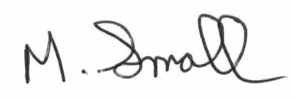 M. Small